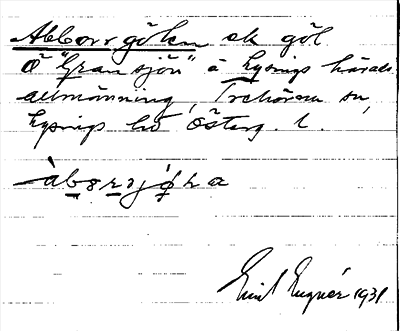 Abborrgöken ek göl
Ö "Gransjön" å Lysings härads
allmänning, Trehörna sn,
Lysings hd Österg. l.
àborrjø̨ka
Emil Eugnér 1931